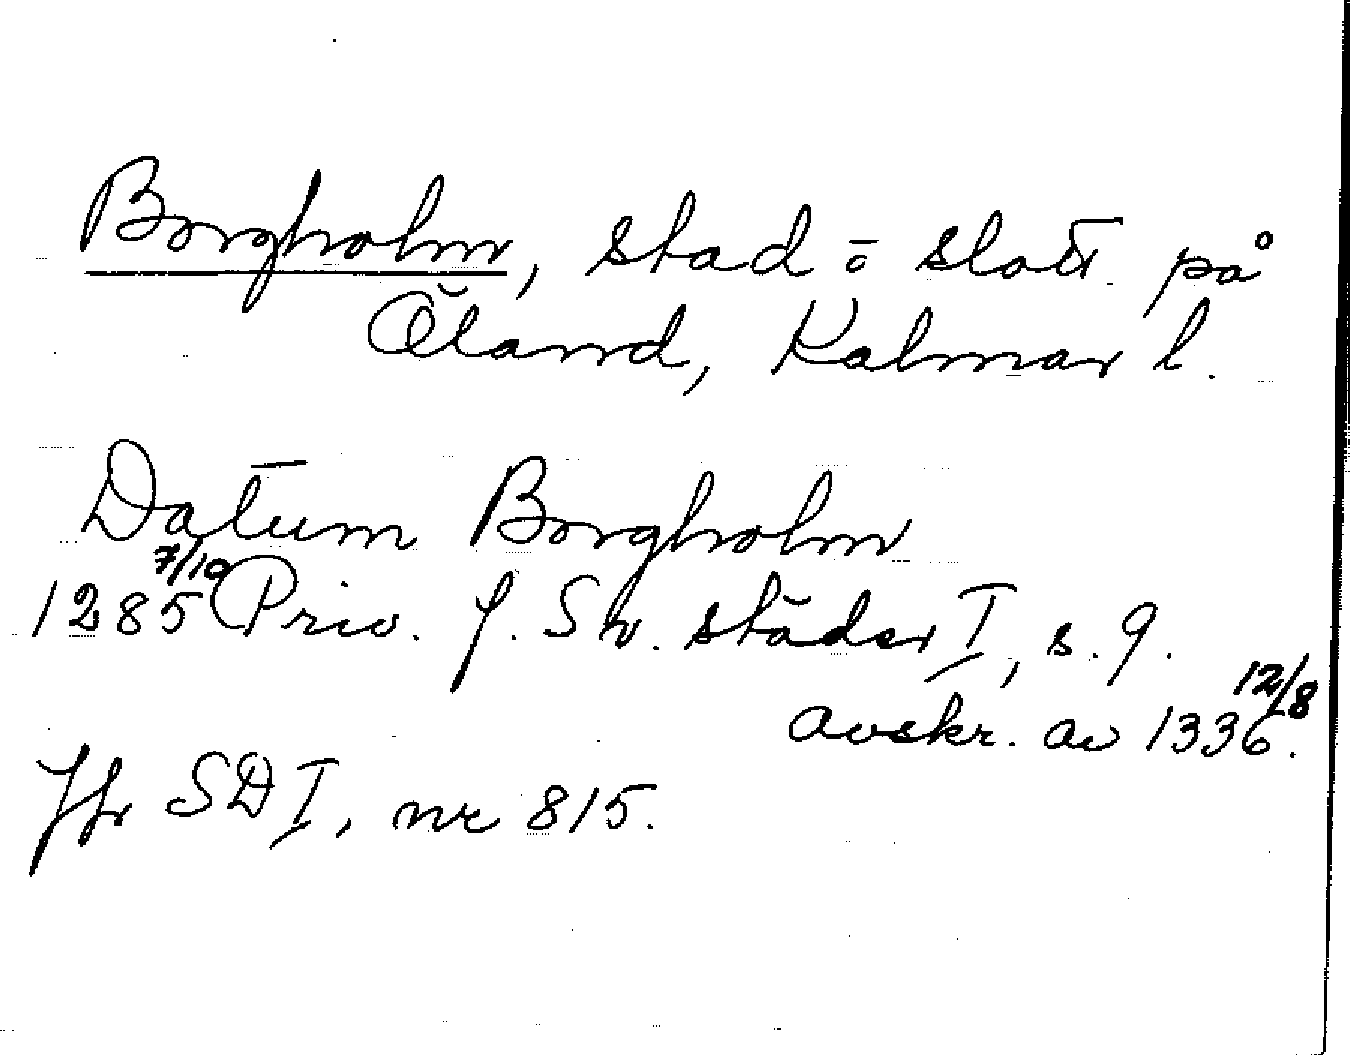 Borgholm, stad ō slott på
Öland, Kalmar l.
Datum Borgholm
1285 7/10 Priv. f. Sv. städer I, s. 9.
avskr. av 1336 12/8.
Jfr SD I, nr 815.